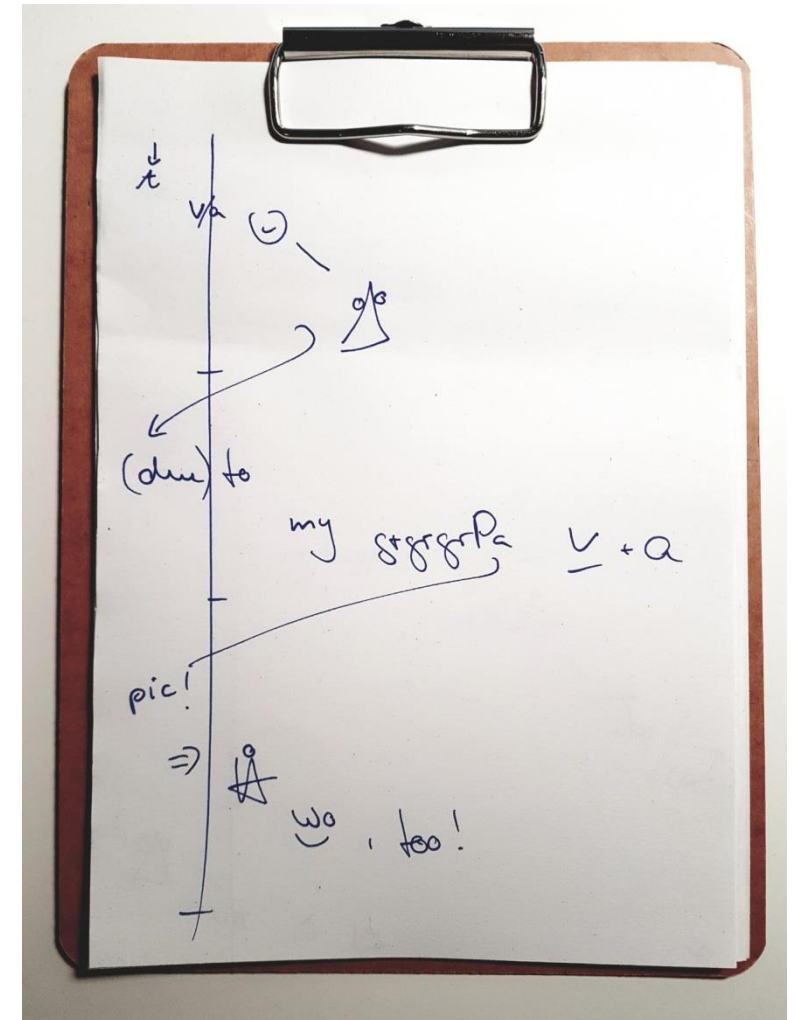 t
v/a
to
my grgrgrPa v + a
pic!
⇒
wo, too!